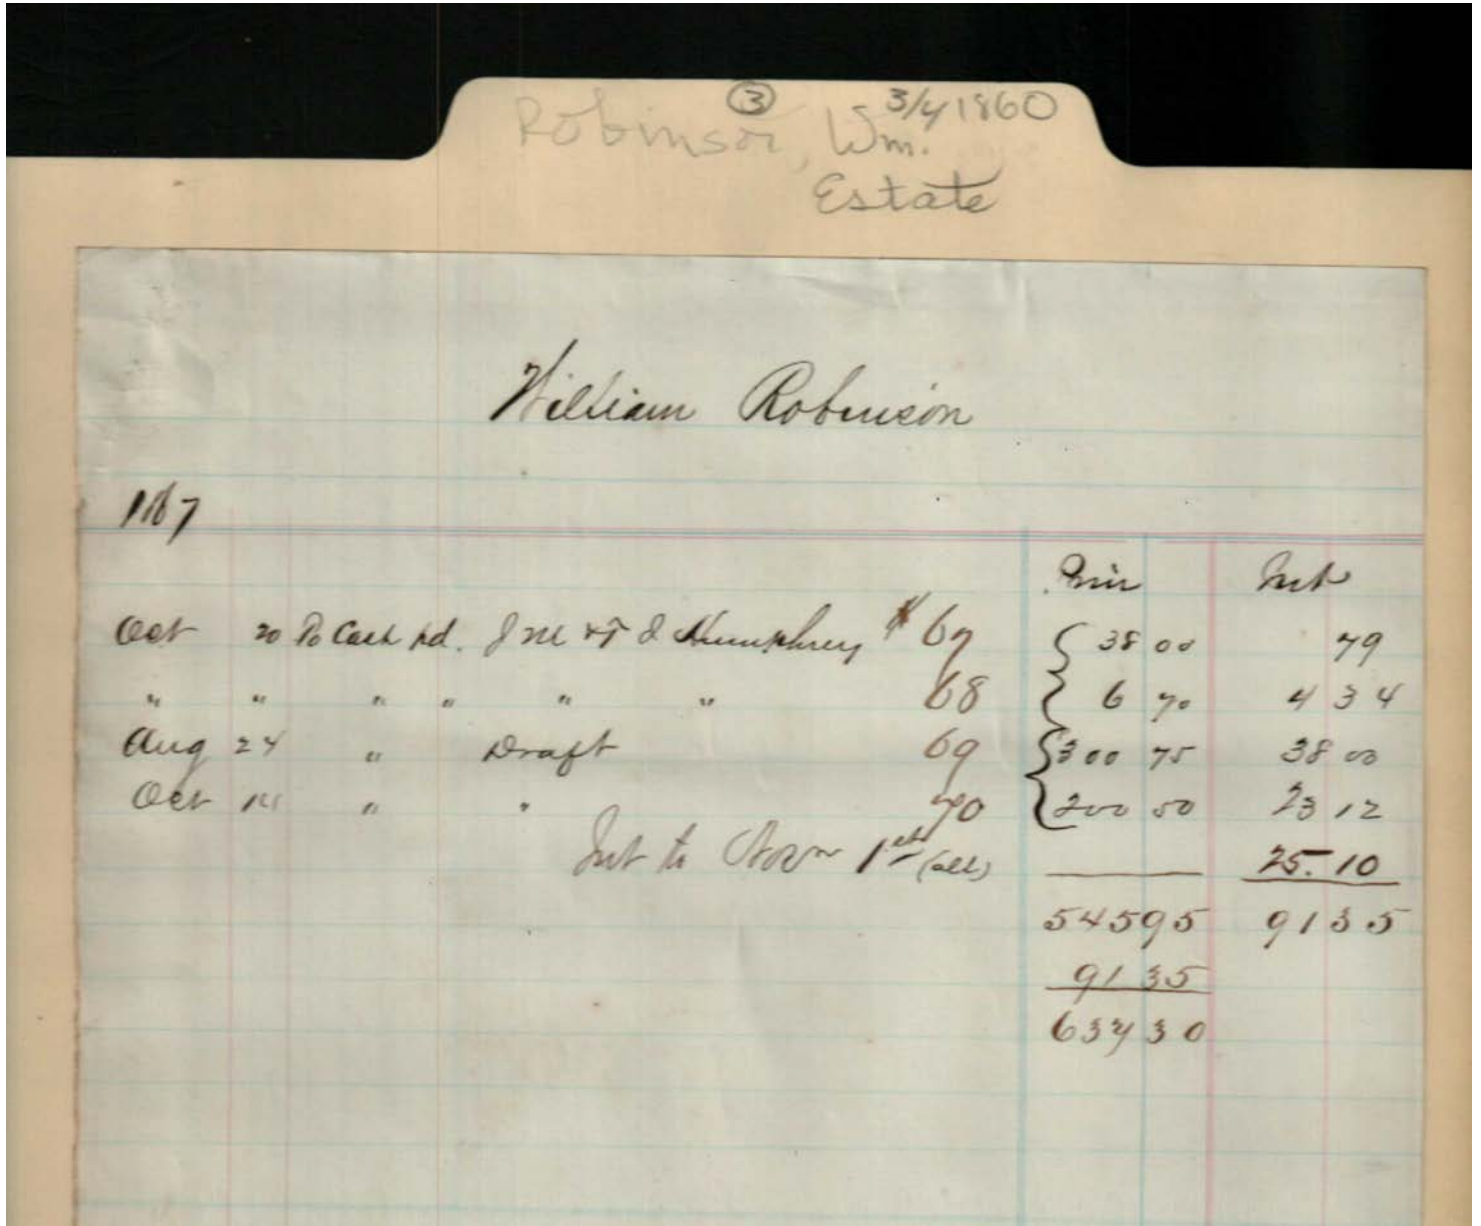 ③ 3/4 1860
Robinson, Wm.
Estate
William Robinson
1867
Prin Int
Oct 20 To Cash pd. J M & T J Humphrey # 67 { 38 00 79
" " " " " " 68 { 6 70 4 34
Aug 24 " Draft 69 { 300 75 38 00
Oct 14 " " 70 { 200 50 23 12
Int to 1st (all) 25.10
545 95 91 35
91 35
637 30